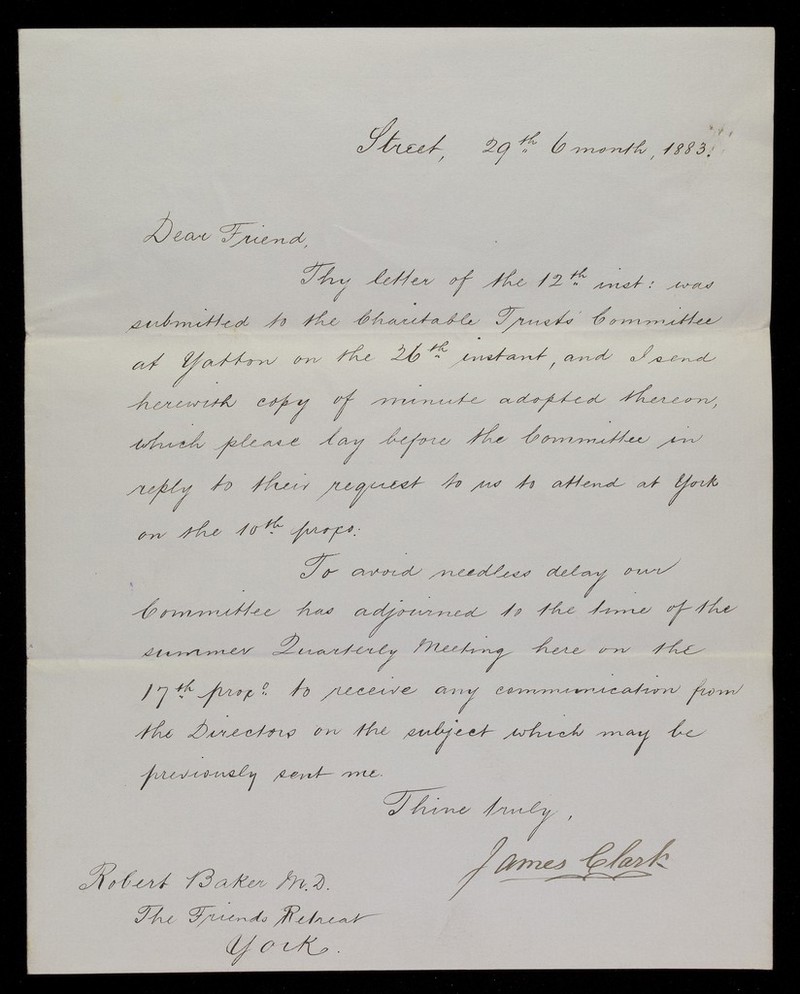 Street, 29th 6 month, 1883.
Dear Friend,
Thy letter of the 12th inst: was
submitted to the Charitable Trusts Committee
at Yatton on the 26th instant, and I send
herewith copy of minute adopted thereon,
which please lay before the Committee in
reply to their request to us to attend at York
on the 10th proxo:
To avoid needless delay our
Committee has adjourned to the time of the
summer Quarterly Meeting here on the
17th proxo to receive any communication from
the Directors on the subject which may be
previously sent me.
Thine truly,
James Clark
Robert Baker M.D.
The Friends Retreat
York.